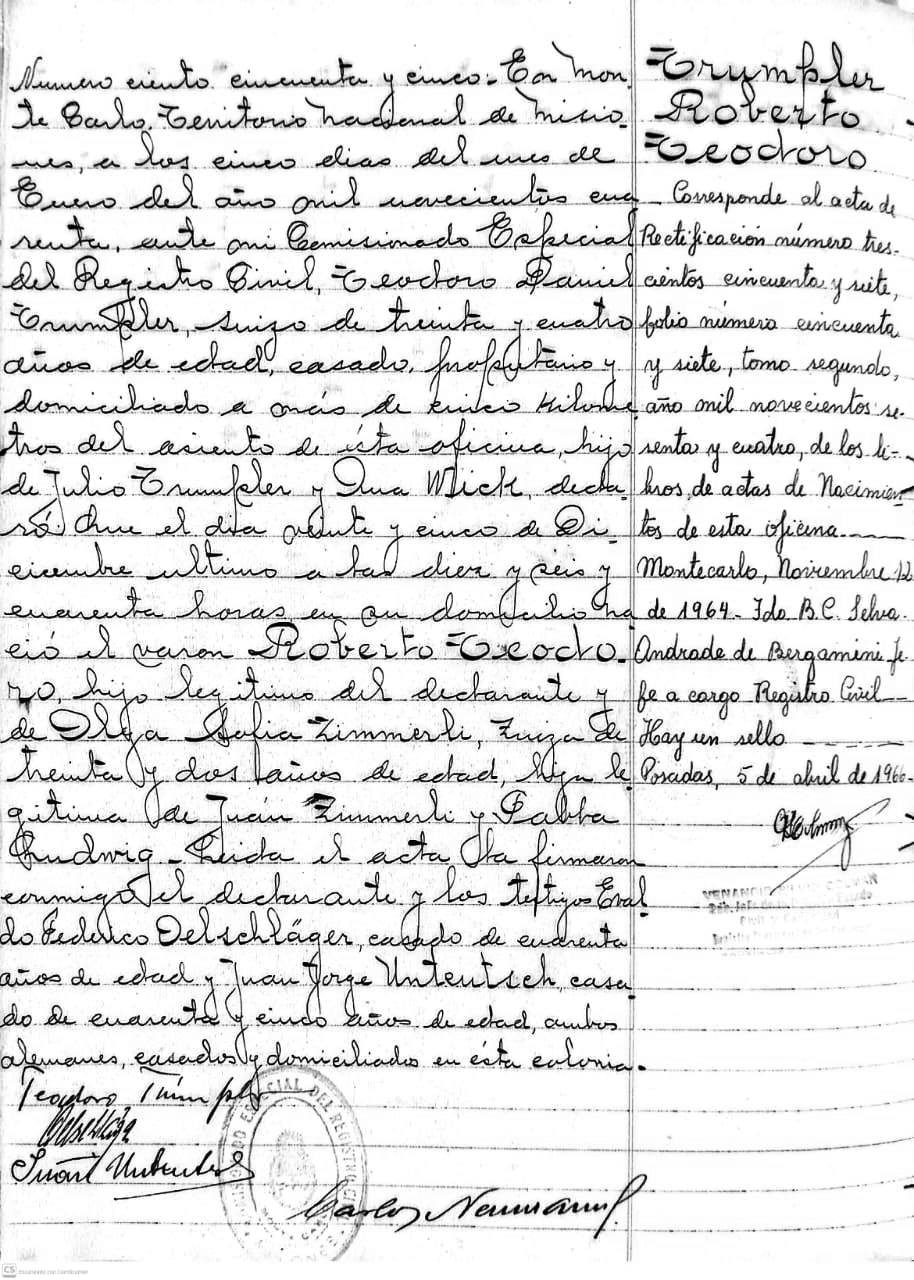 Numero ciento cincuenta y cinco. En Mon-
te Carlo, Territorio Nacional de Misio-
nes, a los cinco dias del mes de
Enero del año mil novecientos cua-
renta, ante mi Comisionado Especial
del Registro Civil, Teodoro Daniel
Trumpler, suizo de treinta y cuatro
años de edad, casado, propietario y
domiciliado a más de cinco kilome
tros del asiento de ésta oficina, hijo
de Julio Trumpler y Ana Wick, decla-
ró: Que el día veinte y cinco de Di-
ciembre ultimo a las diez y seis y
cuarenta horas en su domicilio na
ció el varon Roberto Teodo-
ro, hijo legitimo del declarante y
de Olga Sofia Zimmerli, Zuiza de
treinta y dos años de edad, hija le
gitima de Juán Zimmerli y
Ludwig - Leida el acta la firmaron
conmigo el declarante y los testigos Eval
do Federico Oelschläger, casado de cuarenta
años de edad y Juan Jorge Unteutsch, casa-
do de cuarenta y cinco años de edad, ambos
alemanes, casados y domiciliados en ésta colonia.
Teodoro Trümpler
Juan Unteutsch
Carlos Neumann
COMISIONADO ESPECIAL DEL REGISTRO CIVIL
Trumpler
Roberto
Teodoro
Corresponde al acta de
Rectificación número tres-
cientos cincuenta y siete,
folio número cincuenta
y siete, tomo segundo,
año mil novecientos se-
senta y cuatro, de los li-
bros de actas de Nacimien-
tos de esta oficina
Montecarlo, Noviembre 12
de 1964 - Fdo B.C. Selva
Andrade de Bergamini je
fe a cargo Registro Civil
Hay un sello
Posadas, 5 de abril de 1966-
CS Escaneado con CamScanner